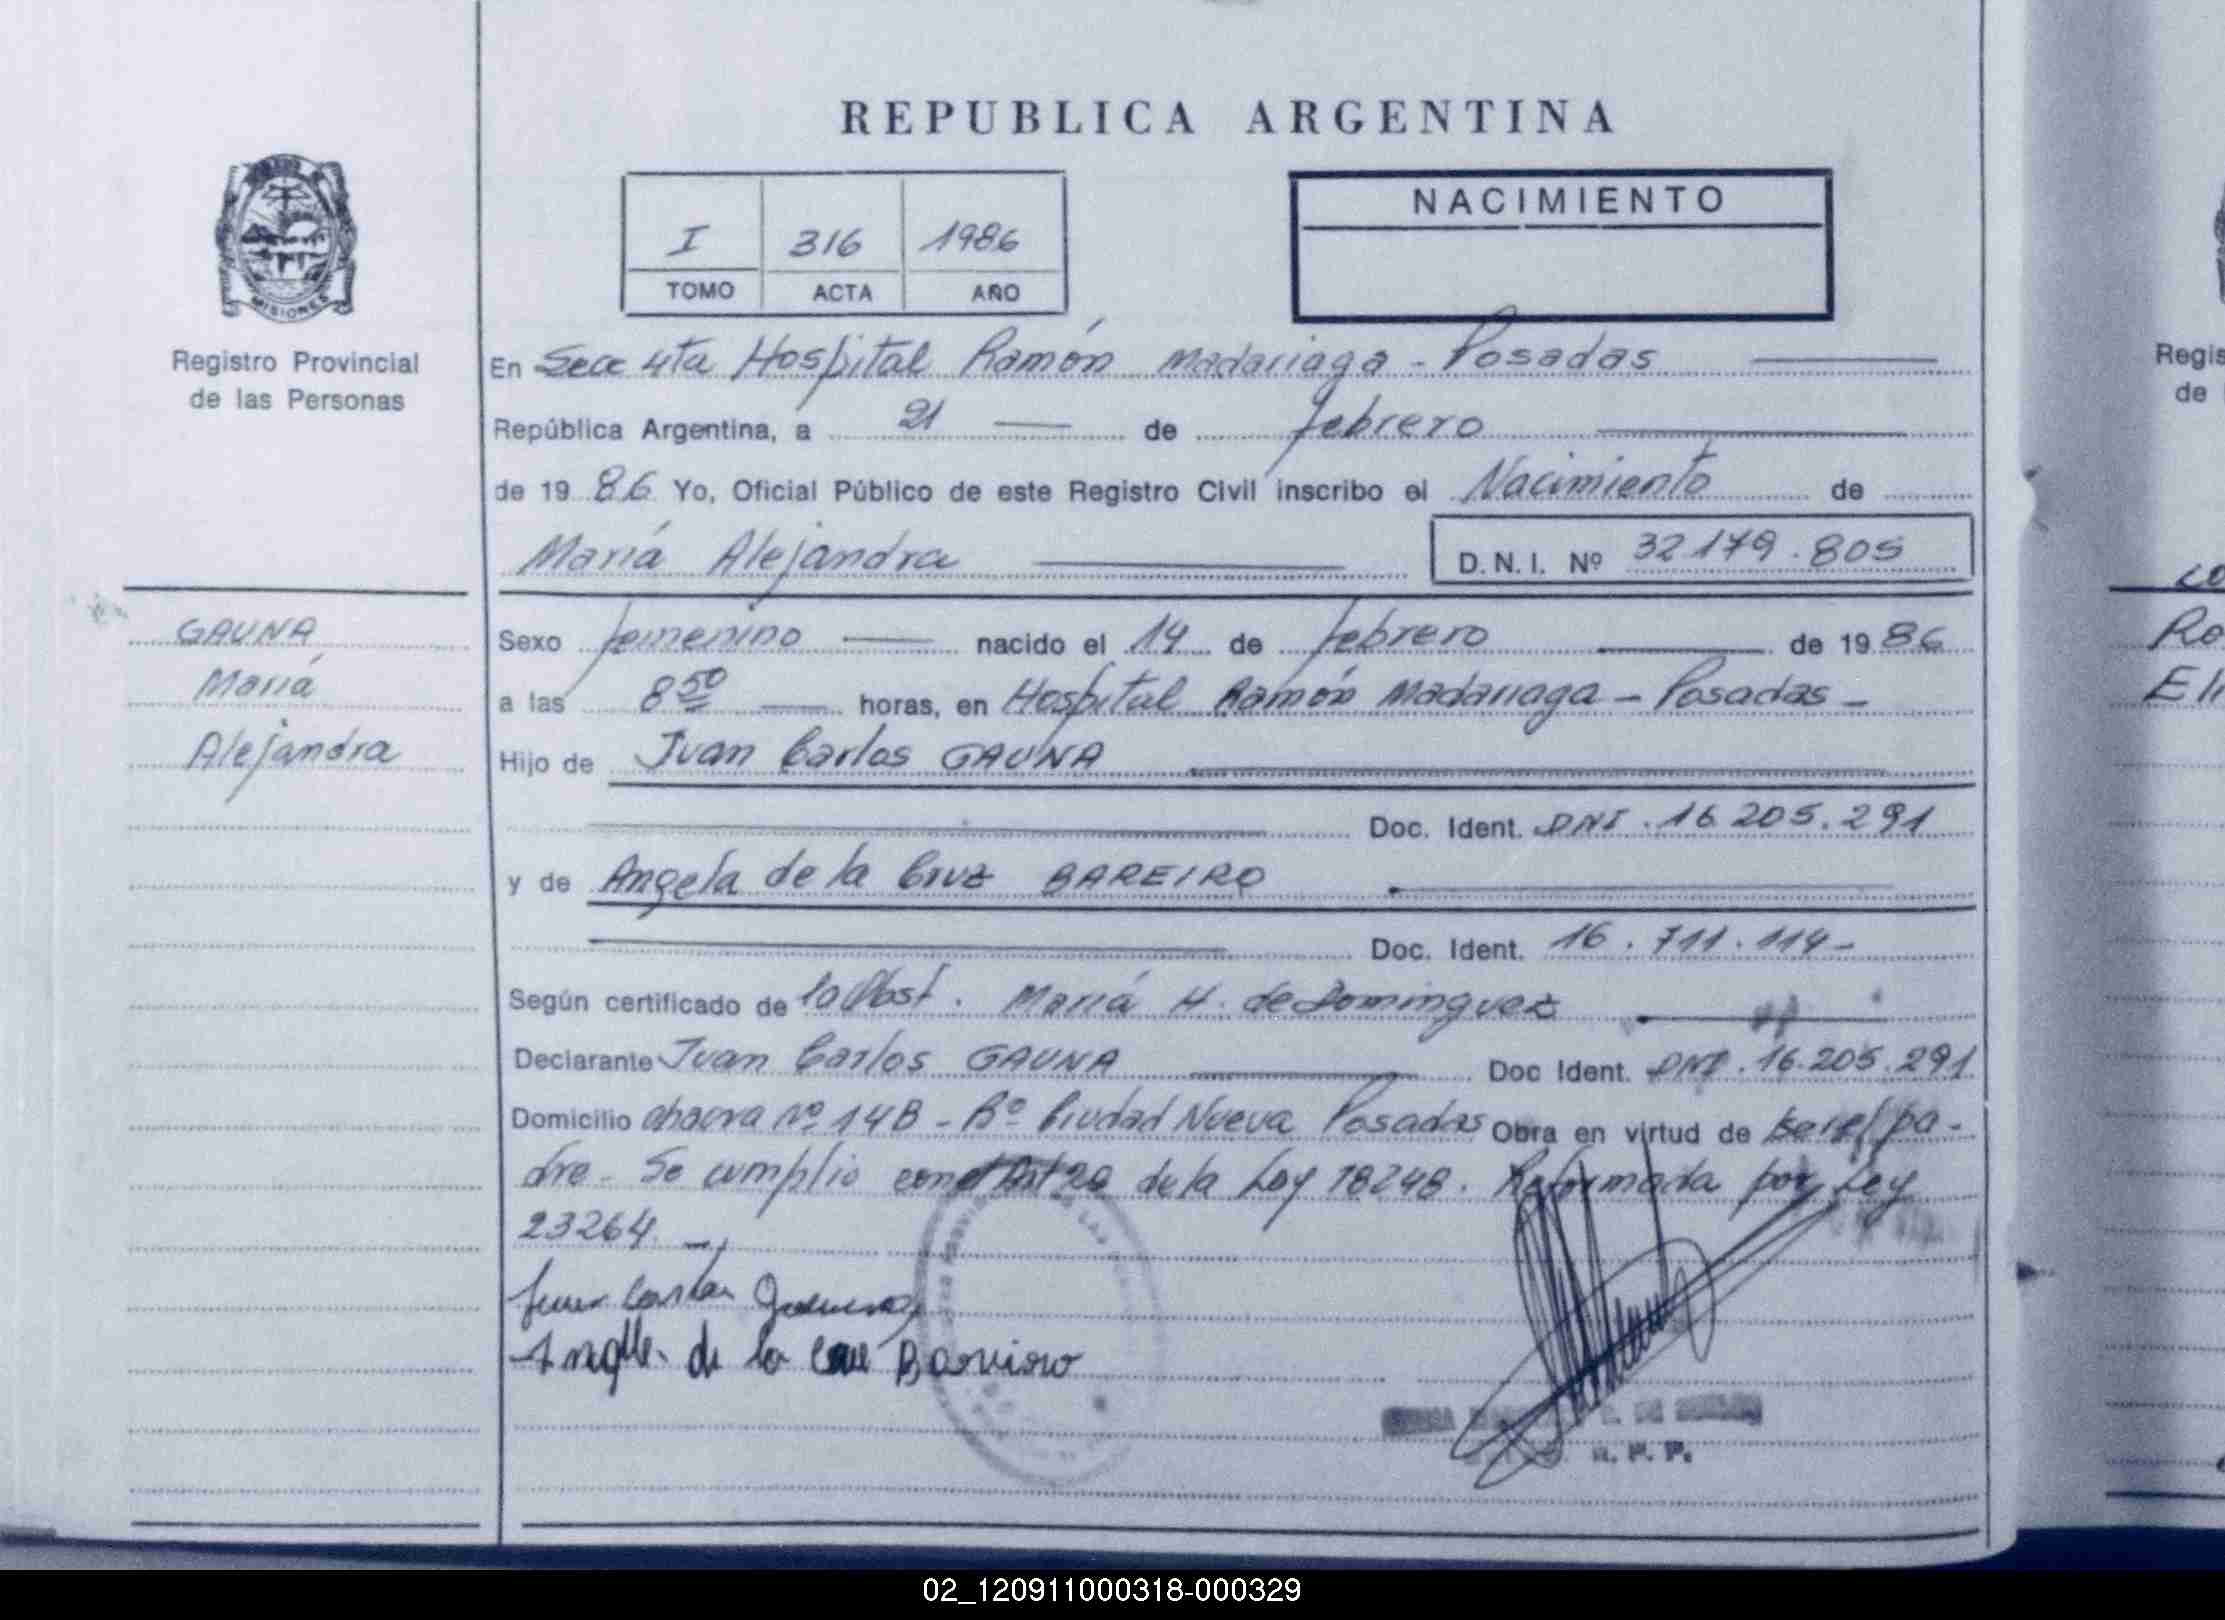 REPUBLICA ARGENTINA
MISIONES
Registro Provincial
de las Personas
I 316 1986
TOMO ACTA AÑO
NACIMIENTO
En Secc 4ta Hospital Ramón Madariaga - Posadas
República Argentina, a 21 de febrero
de 1986 Yo, Oficial Público de este Registro Civil inscribo el Nacimiento de
María Alejandra
D.N.I. Nº 32179.805
GAUNA
María
Alejandra
Sexo femenino nacido el 14 de febrero de 1986
a las 8 50 horas, en Hospital Ramón Madariaga - Posadas -
Hijo de Juan Carlos GAUNA
Doc. Ident. DNI. 16.205.291
y de Angela de la Cruz BAREIRO
Doc. Ident. 16.711.114-
Según certificado de la Obst. María H. de Dominguez
Declarante Juan Carlos GAUNA Doc Ident. DNI. 16.205.291
Domicilio chacra nº 148 - Bº Ciudad Nueva Posadas Obra en virtud de ser el pa-
dre - Se cumplio con el Art 20 de la Ley 18248. Reformada por Ley
23264. -
Juan Carlos Gauna
de la Bareiro
R. P. P.
Regis
de
Ro
02_120911000318-000329